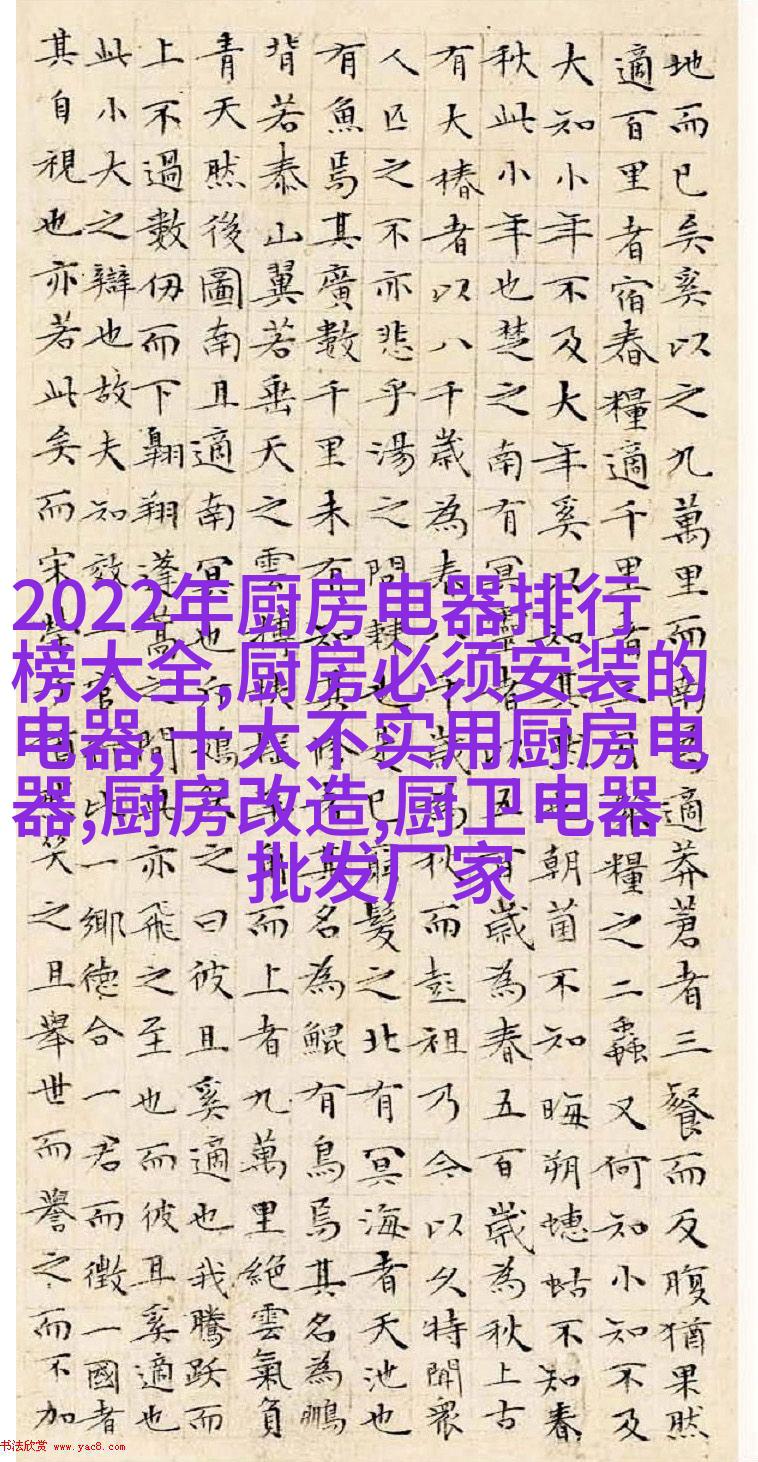 地而已矣奚以之九萬里而南為適莽蒼者三餐而反腹猶果然
適百里者宿舂糧適千里者三月聚糧之二蟲又何知小知不及
大知小年不及大年奚以知其然也朝菌不知晦朔蟪蛄不知春
秋此小年也楚之南有冥靈者以五百歲為春五百歲為秋上古
有大椿者以八千歲為春八千歲為秋而彭祖乃今以久特聞眾
人匹之不亦悲乎湯之問棘也是已窮髮之北有冥海者天池也
有魚焉其廣數千里未有知其修者其名為鯤有鳥焉其名為鵬
背若泰山翼若垂天之雲搏扶搖羊角而上者九萬里絕雲氣負
青天然後圖南且適南冥也斥鴳笑之曰彼且奚適也我騰躍而
上不過數仞而下翱翔蓬蒿之間此亦飛之至也而彼且奚適也
此小大之辯也故夫知效一官行比一鄉德合一君而徵一國者
其自視也亦若此矣而宋榮子猶然笑之且舉世而譽之而不加
2022年厨房电器排行
榜大全,厨房必须安装的
电器,十大不实用厨房电
器,厨房改造,厨卫电器
批发厂家
书法欣赏 www.yac8.com